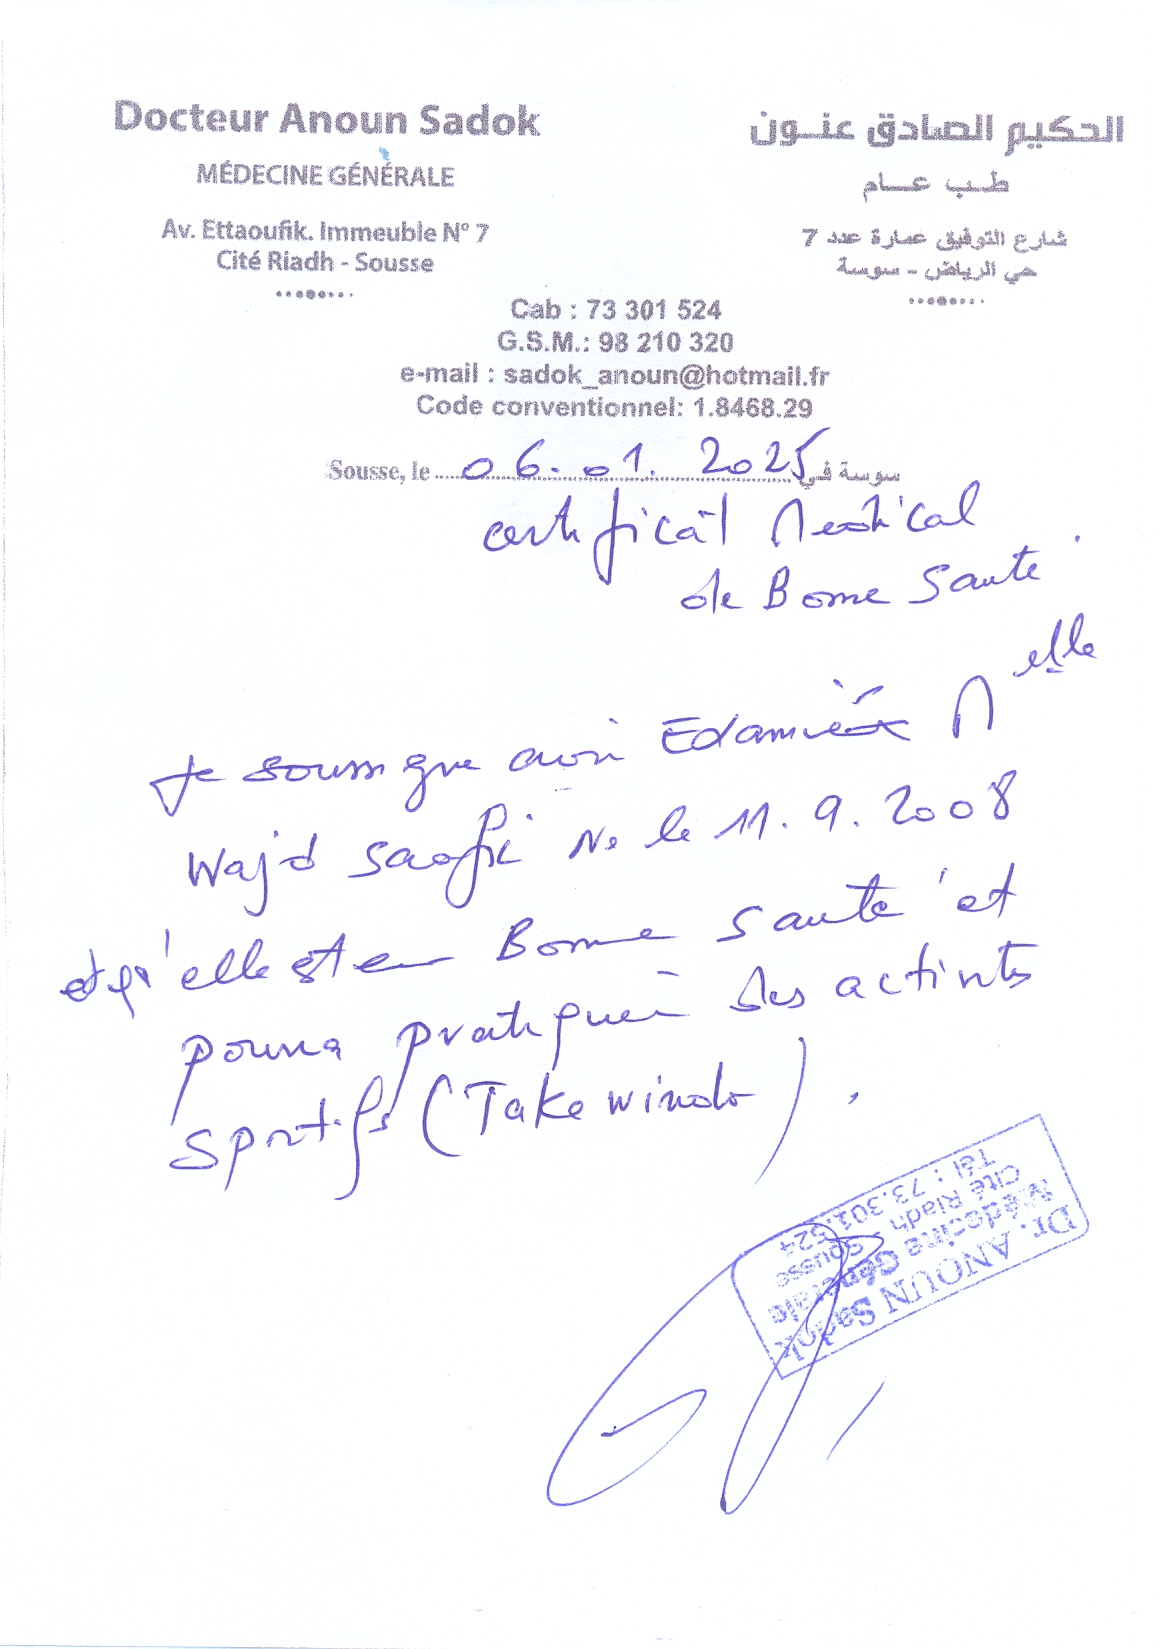 Docteur Anoun Sadok
MÉDECINE GÉNÉRALE
Av. Ettaoufik. Immeuble N° 7
Cité Riadh - Sousse
الحكيم الصادق عنـون
طـب عـــام
شارع التوفيق عمارة عدد 7
حي الرياض - سوسة
Cab : 73 301 524
G.S.M.: 98 210 320
e-mail : sadok_anoun@hotmail.fr
Code conventionnel: 1.8468.29
Sousse, le 06.01.2025 سوسة في
certificat Medical
de Bonne Santé
Je soussigne avoir Examiné Melle
Wajd Saafi Ne le 11.9.2008
et qu'elle est en Bonne santé et
pourra pratiquer des activites
Sportifs (Take windo).
Dr. ANOUN Sadok
Médecine Générale
Cité Riadh - Sousse
Tél : 73.301.524